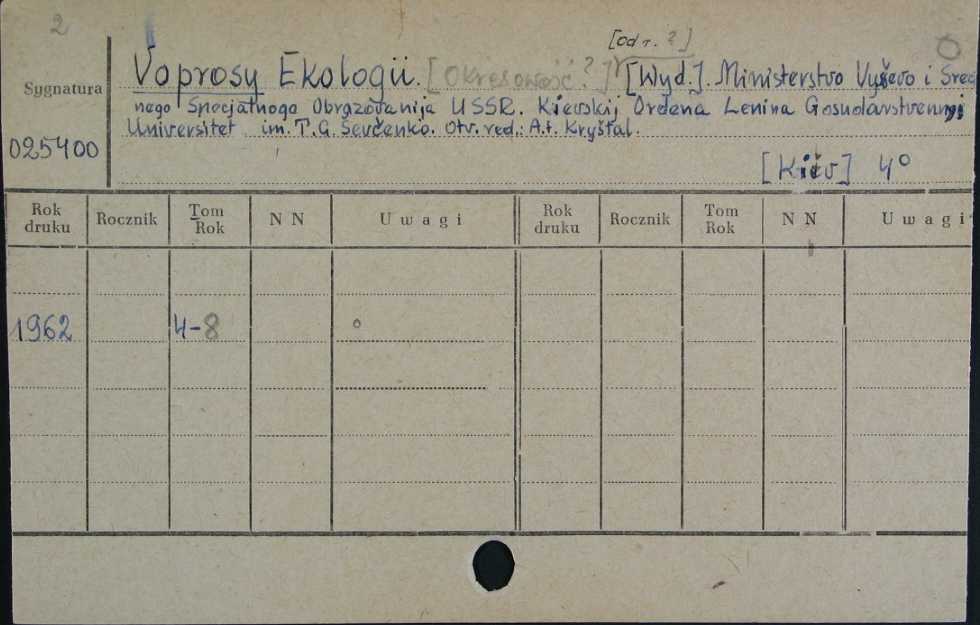 2
[od r. ?]
Voprosy Ekologii. [Okresowość?] [Wyd.]. Ministerstvo Vyševo i Sred
Sygnatura
nego Specjal'nogo Obrazovanija USSR. Kievskij Ordena Lenina Gosudarstvennyj
Universitet im. T.G. Ševčenko. Otv. red.: A.f. Kryštal.
025400
[Kiev] 4°
Rok druku Rocznik Tom Rok N N Uwagi Rok druku Rocznik Tom Rok N N Uwagi
1962 4-8 o